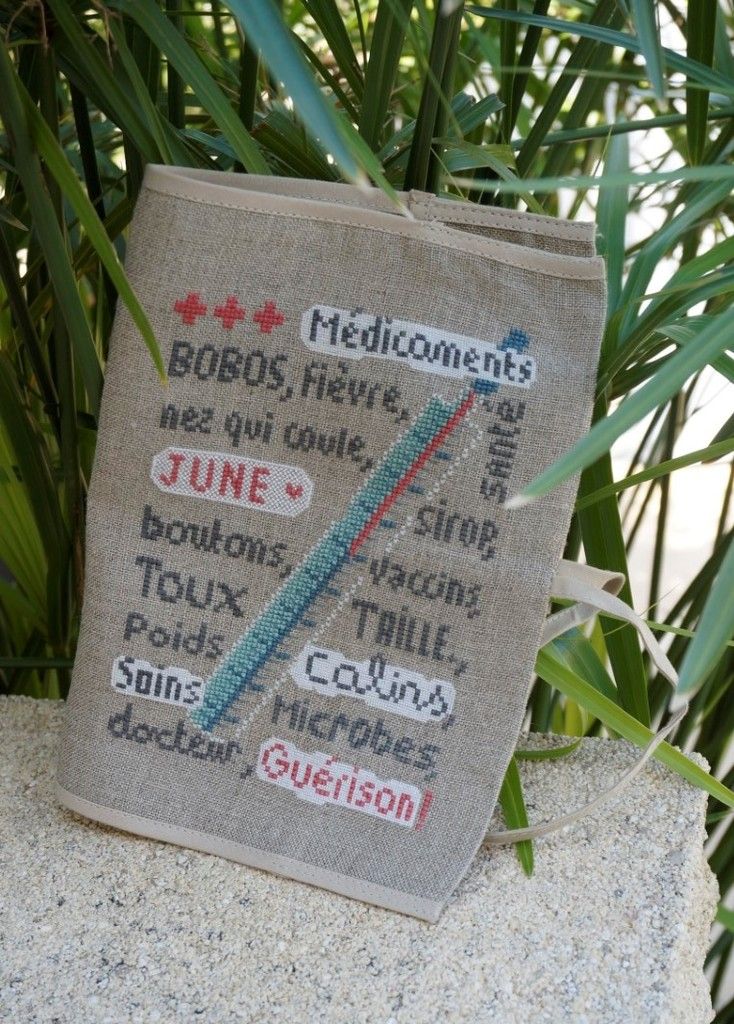 +++ Médicaments
BOBOS, Fièvre,
nez qui coule,
santé,
JUNE ♥
sirop,
boutons,
vaccins,
Toux
TAILLE,
Poids
Calins,
Soins
Microbes,
docteur,
Guérison!